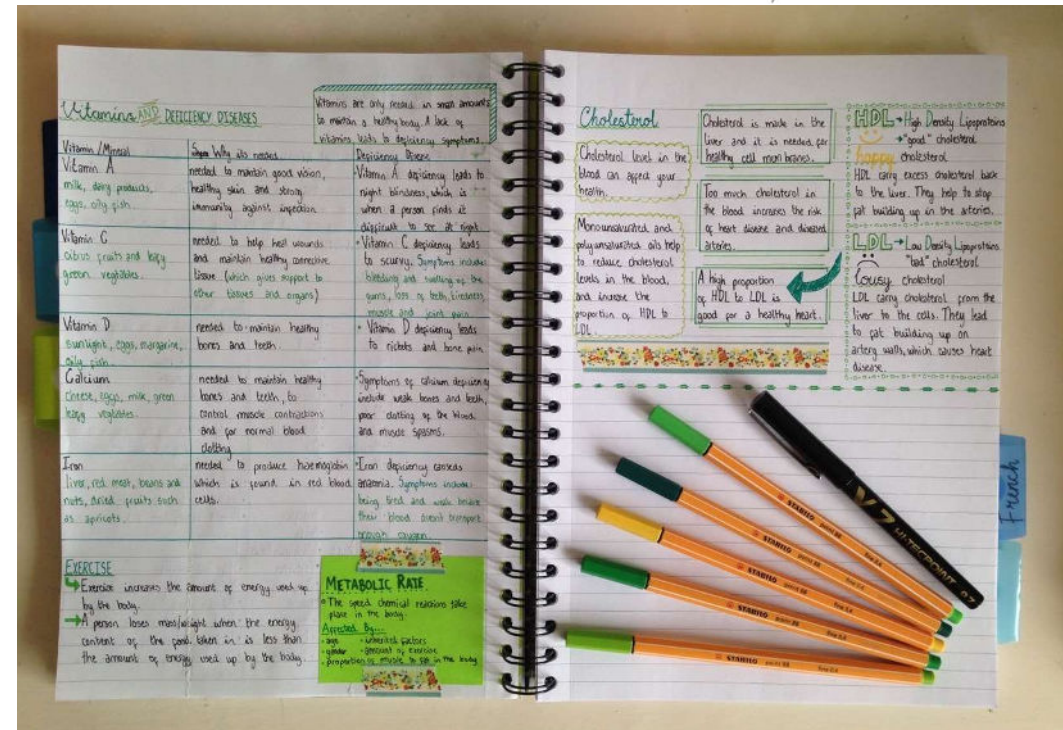 Vitamins AND DEFICIENCY DISEASES
Vitamins are only needed in small amounts
to maintain a healthy body. A lack of
vitamins leads to deficiency symptoms.
Vitamin/Mineral
Why its needed
Deficiency Disease
Vitamin A
milk, dairy products,
eggs, oily fish.
needed to maintain good vision,
healthy skin and strong
immunity against infection.
Vitamin A deficiency leads to
night blindness, which is
when a person finds it
difficult to see at night
Vitamin C
citrus fruits and leafy
green vegtables.
needed to help heal wounds
and maintain healthy connective
tissue (which gives support to
other tissues and organs)
• Vitamin C deficiency leads
to scurvy. Symptoms include
bleeding and swelling of the
gums, loss of teeth, tiredness,
muscle and joint pain.
Vitamin D
sunlight, eggs, margarine,
oily fish.
needed to maintain healthy
bones and teeth.
• Vitamin D deficiency leads
to rickets and bone pain
Calcium
cheese, eggs, milk, green
leafy vegtables.
needed to maintain healthy
bones and teeth, to
control muscle contractions
and for normal blood
clotting
•Symptoms of calcium deficiency
include weak bones and teeth,
poor clotting of the blood,
and muscle spasms.
Iron
liver, red meat, beans and
nuts, dried fruits such
as apricots.
needed to produce haemoglobin
which is found in red blood
cells.
•Iron deficiency causeds
anaemia. Symptoms include
being tired and weak because
their blood doesnt transport
enough oxygen.
EXERCISE
Exercise increases the amount of energy used up
by the body.
A person loses mass/weight when the energy
content of the food taken in is less than
the amount of energy used up by the body.
METABOLIC RATE
• The speed chemical reactions take
place in the body.
Affected By...
• age • inherited factors
• gender • amount of exercise
• proportion of muscle to fat in the body
Cholesterol
Cholesterol level in the
blood can affect your
health.
Monounsaturated and
polyunsaturated oils help
to reduce cholesterol
levels in the blood,
and increase the
proportion of HDL to
LDL.
Cholesterol is made in the
liver and it is needed for
healthy cell membranes.
Too much cholesterol in
the blood increases the risk
of heart disease and diseased
arteries.
A high proportion
of HDL to LDL is
good for a healthy heart.
HDL → High Density Lipoproteins
→ "good" cholesterol
happy cholesterol
HDL carry excess cholesterol back
to the liver. They help to stop
fat building up in the arteries.
LDL → Low Density Lipoproteins
"bad" cholesterol
lousy cholesterol
LDL carry cholesterol from the
liver to the cells. They lead
to fat building up on
artery walls, which causes heart
disease.
French
V7 HI-TECPOINT 0.7
STABILO point 88 fine 0.4
STABILO point 88 fine 0.4
STABILO point 88 fine 0.4
STABILO point 88 fine 0.4
STABILO point 88 fine 0.4